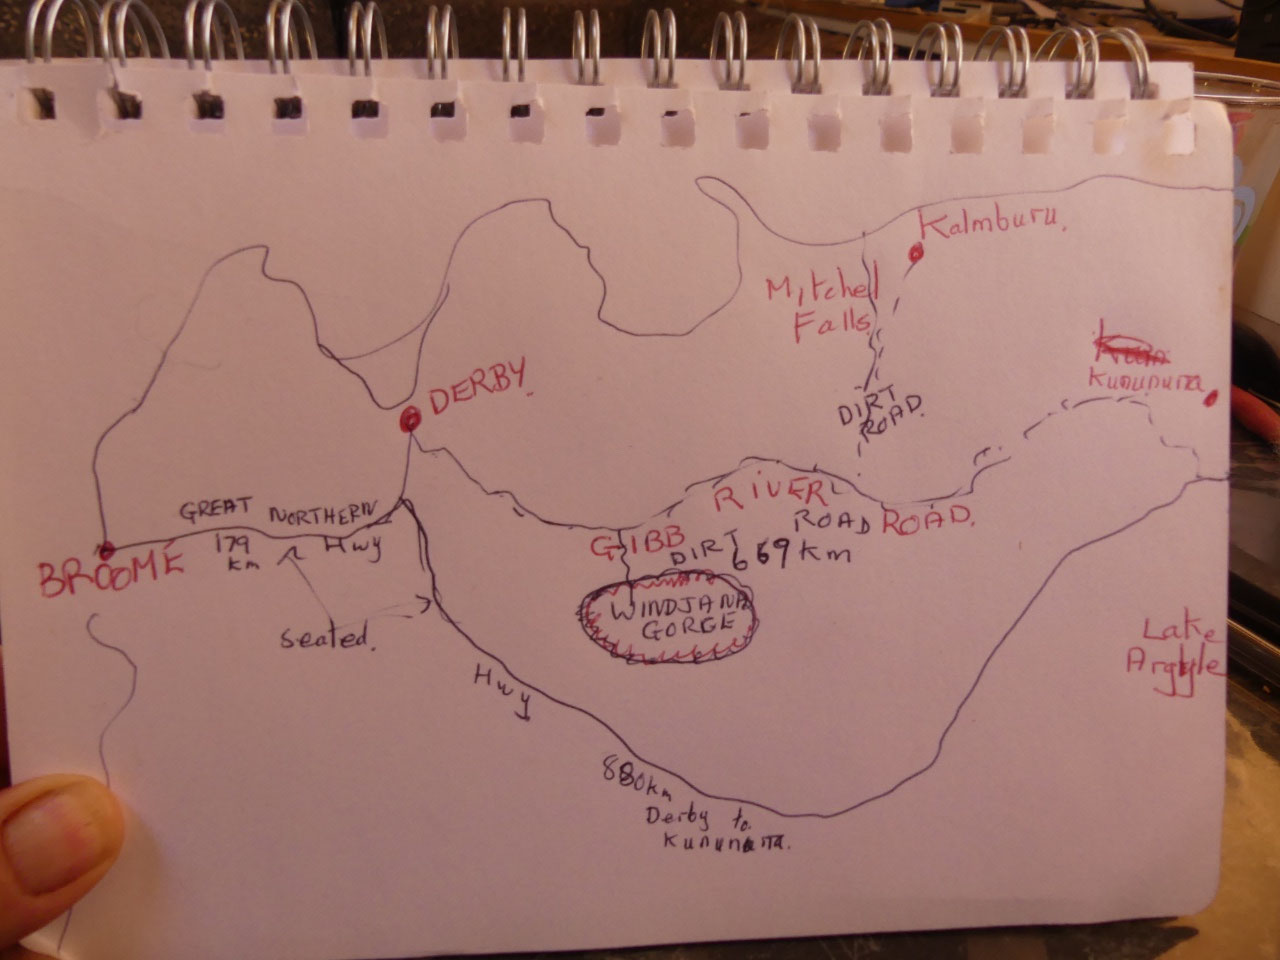 Kalmburu.
Mitchel
Falls
Kununurra
DERBY.
DIRT
ROAD.
GREAT NORTHERN
Hwy
179
km
BROOME
GIBB RIVER ROAD.
DIRT ROAD
669 km
WINDJANA
GORGE
sealed.
Lake
Argyle
Hwy
880km
Derby to
Kununurra.